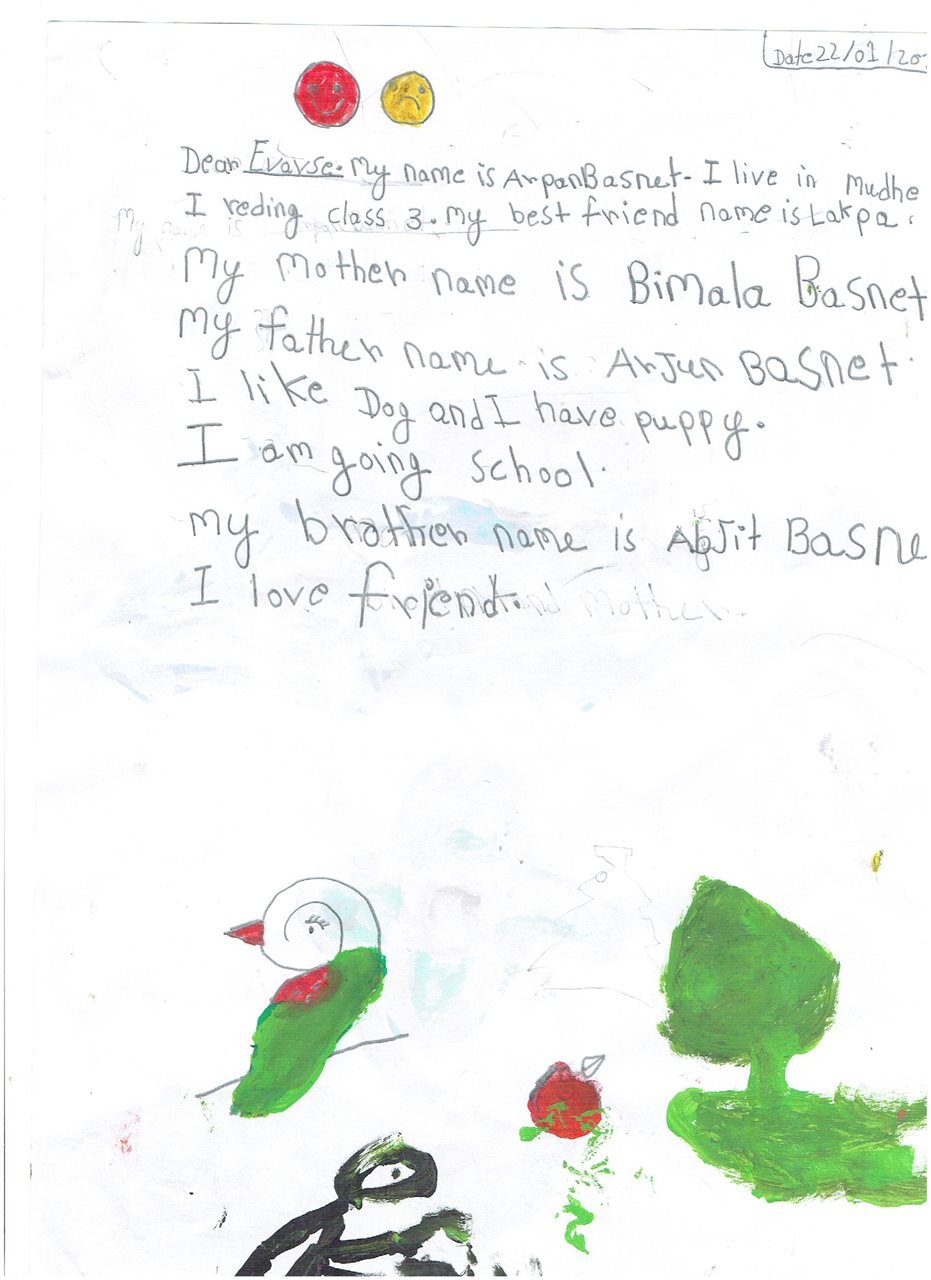 Date 22/01/20
Dear Evavse. My name is Arpan Basnet. I live in Mudhe
I reding class 3. My best friend name is Lakpa.
My mother name is Bimala Basnet
My father name is Arjun Basnet.
I like Dog and I have puppy.
I am going school.
My brother name is Abjit Basne
I love friend.